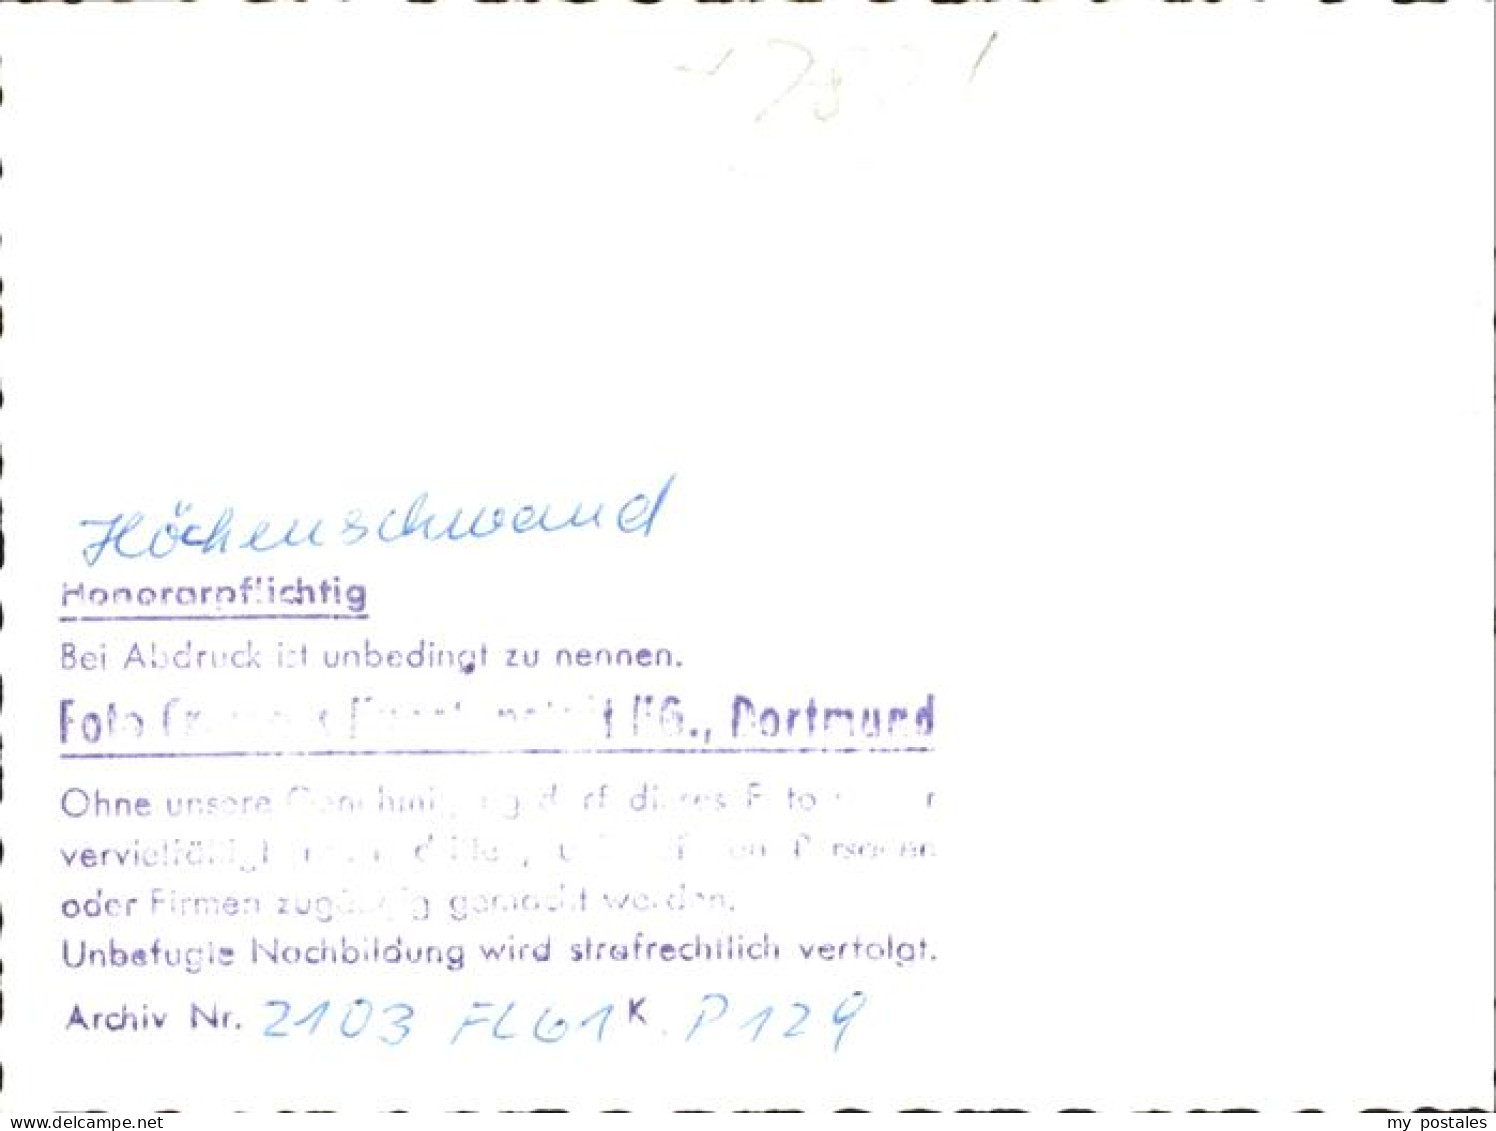 Höchenschwand
Honorarpflichtig
Bei Abdruck ist unbedingt zu nennen.
Foto KG., Dortmund
Ohne unsere Genehmigung darf dieses Foto
vervielfältigt Personen
oder Firmen zugängig gemacht werden.
Unbefugte Nachbildung wird strafrechtlich verfolgt.
Archiv Nr. 2103 FL61 K. P129
www.delcampe.net
my_postales